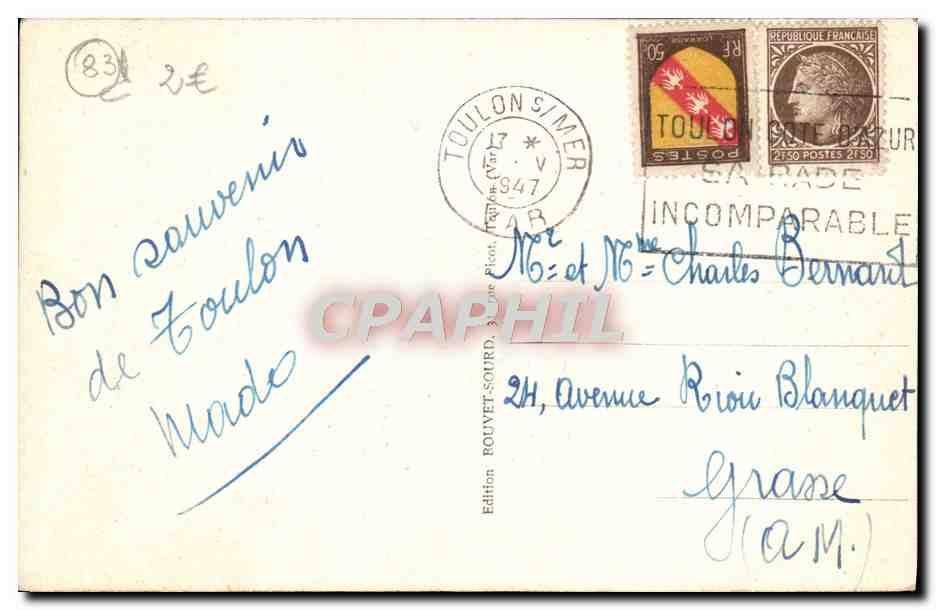 83
2€
Bon souvenir
de Toulon
Mado
TOULON S/MER
17 *
V
1947
VAR
50c RF
LORRAINE
POSTES
RÉPUBLIQUE FRANÇAISE
2F50 POSTES 2F50
TOULON COTE D'AZUR
SA RADE
INCOMPARABLE
Edition BOUVET-SOURD, rue Picot, Toulon (Var)
CPAPHIL
Mr et Mme Charles Bernard
24, avenue Riou Blanquet
Grasse
(A M.)